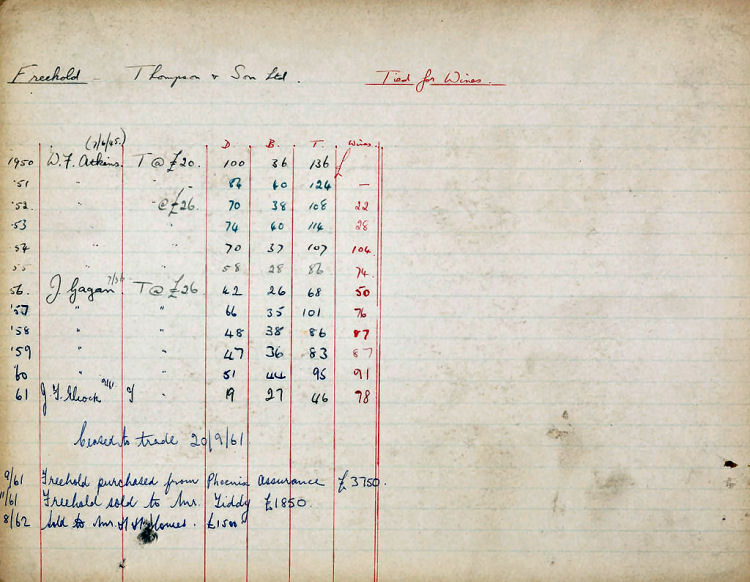 Freehold - Thompson & Son Ltd. Tied for Wines.
(7/6/45.) D. B. T. Wines
1950 W.F. Atkins. T @ £20. 100 36 136
'51 " " 84 40 124 —
'52. " " @ £26. 70 38 108 22
'53 " " 74 40 114 28
'54 " " 70 37 107 104
'55 " " 58 28 86 74
56. J. Gagan 7/56 T @ £26 42 26 68 50
'57 " " 66 35 101 76
'58 " " 48 38 86 87
'59 " " 47 36 83 87
'60 " " 51 44 95 91
61 T " 19 27 46 78
Ceased to trade 20/9/61
9/61 Freehold purchased from Phoenix Assurance £3750.
11/61 Freehold sold to Mr. Tiddy £1850.
8/62 Sold to Mr. £1500